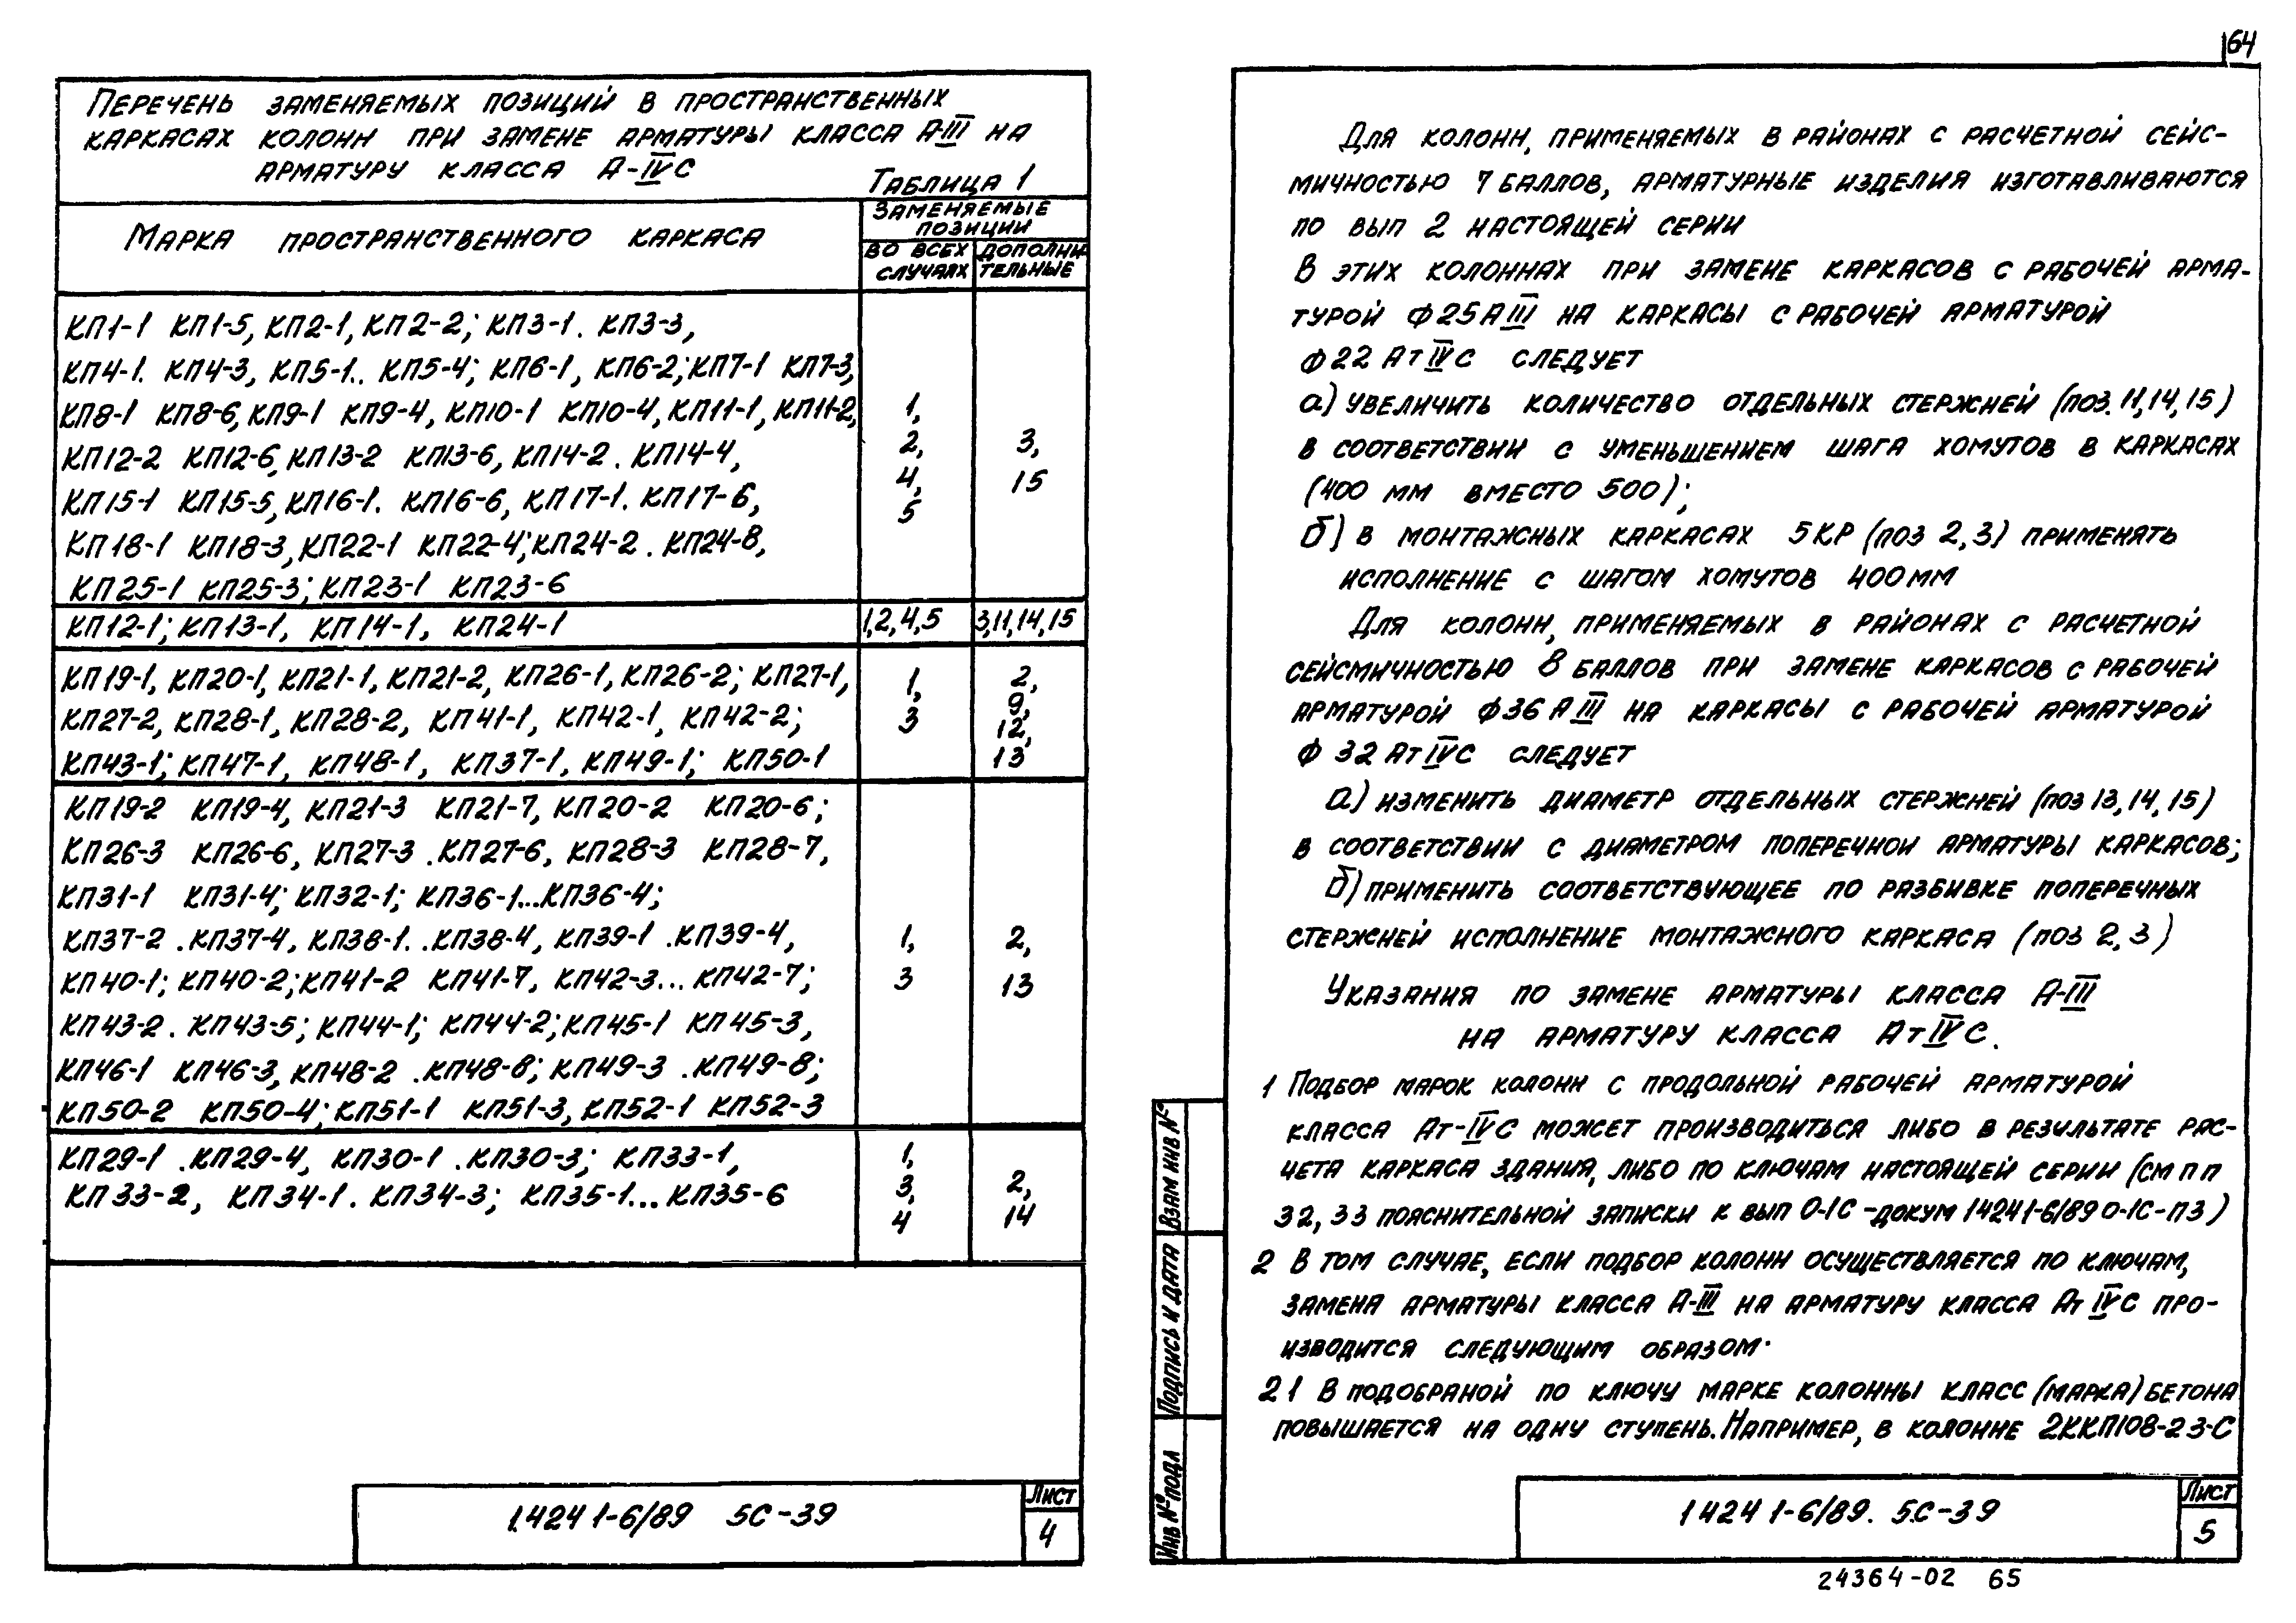 64
Перечень заменяемых позиций в пространственных
каркасах колонн при замене арматуры класса А-III на
арматуру класса А-IVС
Таблица 1
Марка пространственного каркаса
Заменяемые
позиции
во всех
случаях
дополни
тельные
КП1-1 КП1-5, КП2-1, КП2-2; КП3-1. КП3-3,
КП4-1. КП4-3, КП5-1.. КП5-4; КП6-1, КП6-2; КП7-1 КП7-3,
КП8-1 КП8-6, КП9-1 КП9-4, КП10-1 КП10-4, КП11-1, КП11-2,
КП12-2 КП12-6, КП13-2 КП13-6, КП14-2. КП14-4,
КП15-1 КП15-5, КП16-1. КП16-6, КП17-1. КП17-6,
КП18-1 КП18-3, КП22-1 КП22-4; КП24-2. КП24-8,
КП25-1 КП25-3; КП23-1 КП23-6
1,
2,
4,
5
3,
15
КП12-1; КП13-1, КП14-1, КП24-1
1,2,4,5
3,11,14,15
КП19-1, КП20-1, КП21-1, КП21-2, КП26-1, КП26-2; КП27-1,
КП27-2, КП28-1, КП28-2, КП41-1, КП42-1, КП42-2;
КП43-1; КП47-1, КП48-1, КП37-1, КП49-1; КП50-1
1,
3
2,
9,
12,
13
КП19-2 КП19-4, КП21-3 КП21-7, КП20-2 КП20-6;
КП26-3 КП26-6, КП27-3 .КП27-6, КП28-3 КП28-7,
КП31-1 КП31-4; КП32-1; КП36-1...КП36-4;
КП37-2 .КП37-4, КП38-1. .КП38-4, КП39-1 .КП39-4,
КП40-1; КП40-2; КП41-2 КП41-7, КП42-3... КП42-7;
КП43-2. КП43-5; КП44-1; КП44-2; КП45-1 КП45-3,
КП46-1 КП46-3, КП48-2 .КП48-8; КП49-3 .КП49-8;
КП50-2 КП50-4; КП51-1 КП51-3, КП52-1 КП52-3
1,
3
2,
13
КП29-1 .КП29-4, КП30-1 .КП30-3; КП33-1,
КП33-2, КП34-1. КП34-3; КП35-1... КП35-6
1,
3,
4
2,
14
1.424 1-6/89 5С-39
Лист
4
Для колонн, применяемых в районах с расчетной сейс-
мичностью 7 баллов, арматурные изделия изготавливаются
по вып 2 настоящей серии
В этих колоннах при замене каркасов с рабочей арма-
турой Ф25АIII на каркасы с рабочей арматурой
Ф22 АтIVС следует
а) увеличить количество отдельных стержней (поз. 11,14,15)
в соответствии с уменьшением шага хомутов в каркасах
(400 мм вместо 500);
б) в монтажных каркасах 5КР (поз 2,3) применять
исполнение с шагом хомутов 400мм
Для колонн, применяемых в районах с расчетной
сейсмичностью 8 баллов при замене каркасов с рабочей
арматурой Ф36 АIII на каркасы с рабочей арматурой
Ф 32 АтIVС следует
а) изменить диаметр отдельных стержней (поз 13,14,15)
в соответствии с диаметром поперечной арматуры каркасов;
б) применить соответствующее по разбивке поперечных
стержней исполнение монтажного каркаса (поз 2,3)
Указания по замене арматуры класса А-III
на арматуру класса АтIVС.
1 Подбор марок колонн с продольной рабочей арматурой
класса Ат-IVС может производиться либо в результате рас-
чета каркаса здания, либо по ключам настоящей серии (см п п
32, 33 пояснительной записки к вып 0-1С -докум 1 424 1-6/89 0-1С-ПЗ)
2 В том случае, если подбор колонн осуществляется по ключам,
замена арматуры класса А-III на арматуру класса Ат IVС про-
изводится следующим образом.
2 1 В подобраной по ключу марке колонны класс (марка) бетона
повышается на одну ступень. Например, в колонне 2ККП108-2 3-С
Взам инв №
Подпись и дата
Инв № подл
1 424 1-6/89. 5.С-39
Лист
5
24364-02 65